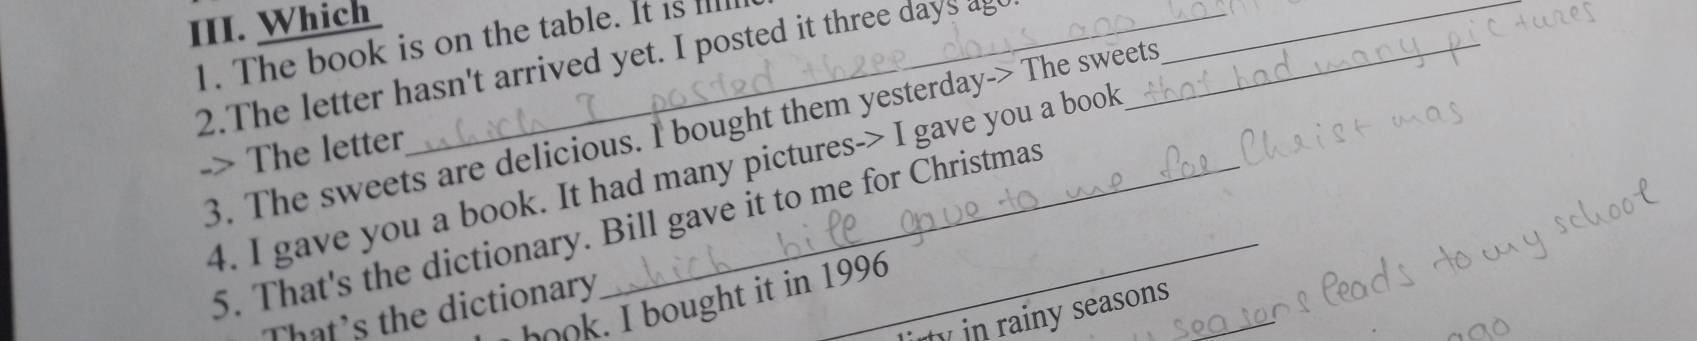 III. Which
1. The book is on the table. It is
2.The letter hasn't arrived yet. I posted it three days ago.
-> The letter which I posted three days ago
3. The sweets are delicious. I bought them yesterday-> The sweets
4. I gave you a book. It had many pictures-> I gave you a book that had many pictures
5. That's the dictionary. Bill gave it to me for Christmas
That's the dictionary which bill gave to me for Christmas
book. I bought it in 1996
in rainy seasons
seasons leads to my school
ago